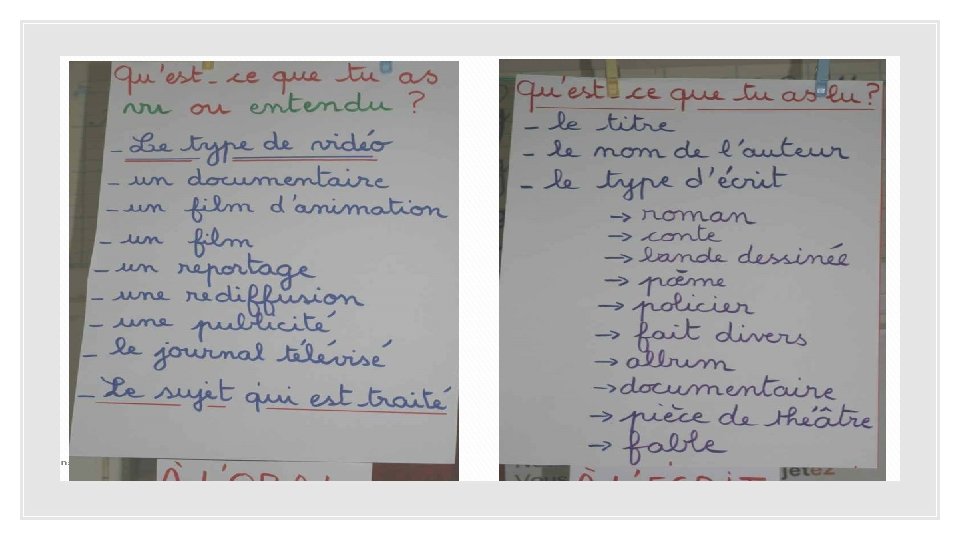 Qu'est-ce que tu as
vu ou entendu ?
- Le type de vidéo
- un documentaire
- un film d'animation
- un film
- un reportage
- une rediffusion
- une publicité
- le journal télévisé
- Le sujet qui est traité
À L'ORAL
Qu'est-ce que tu as lu ?
- le titre
- le nom de l'auteur
- le type d'écrit
→ roman
→ conte
→ bande dessinée
→ poème
→ policier
→ fait divers
→ album
→ documentaire
→ pièce de théâtre
→ fable
Vous
jetez
À L'ÉCRIT